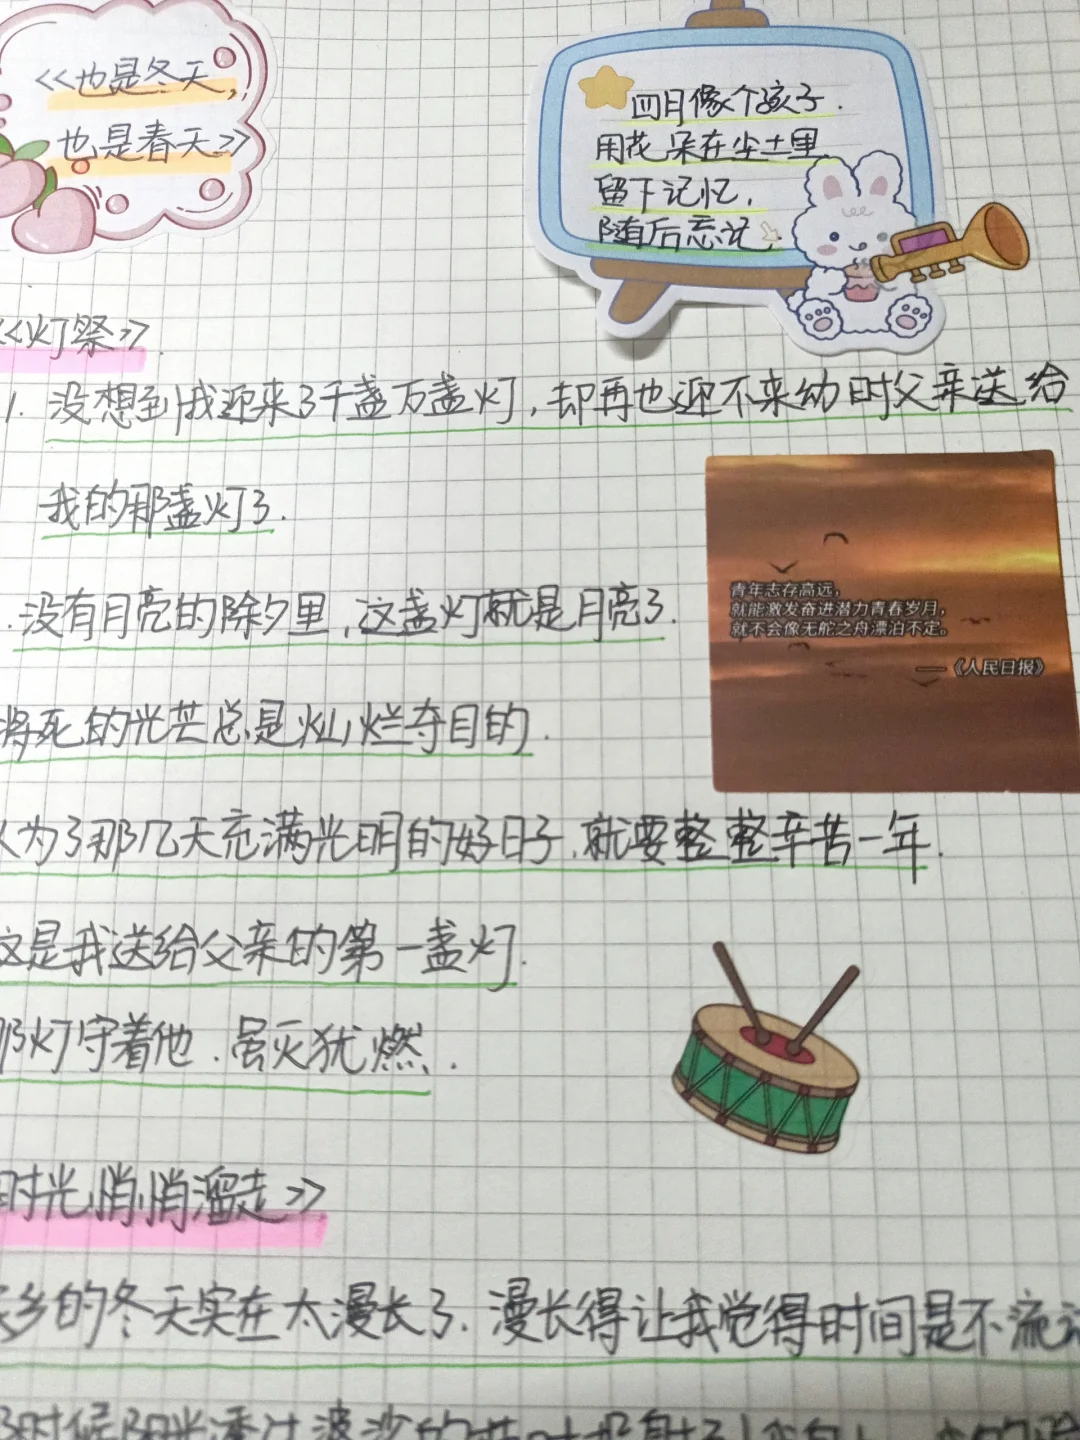 <<也是冬天,
也是春天>>
四月像个孩子.
用花朵在尘土里
留下记忆,
随后忘记.
<<灯祭>>.
1. 没想到我迎来了千盏万盏灯,却再也迎不来幼时父亲送给
我的那盏灯了.
.没有月亮的除夕里,这盏灯就是月亮了.
青年志存高远,
就能激发奋进潜力青春岁月,
就不会像无舵之舟漂泊不定。
——《人民日报》
将死的光芒总是灿烂夺目的.
人为了那几天充满光明的好日子.就要整整辛苦一年.
这是我送给父亲的第一盏灯.
那灯守着他.虽灭犹燃.
时光悄悄溜走>>
乡的冬天实在太漫长了.漫长得让我觉得时间是不流
时候阳光透过婆娑的